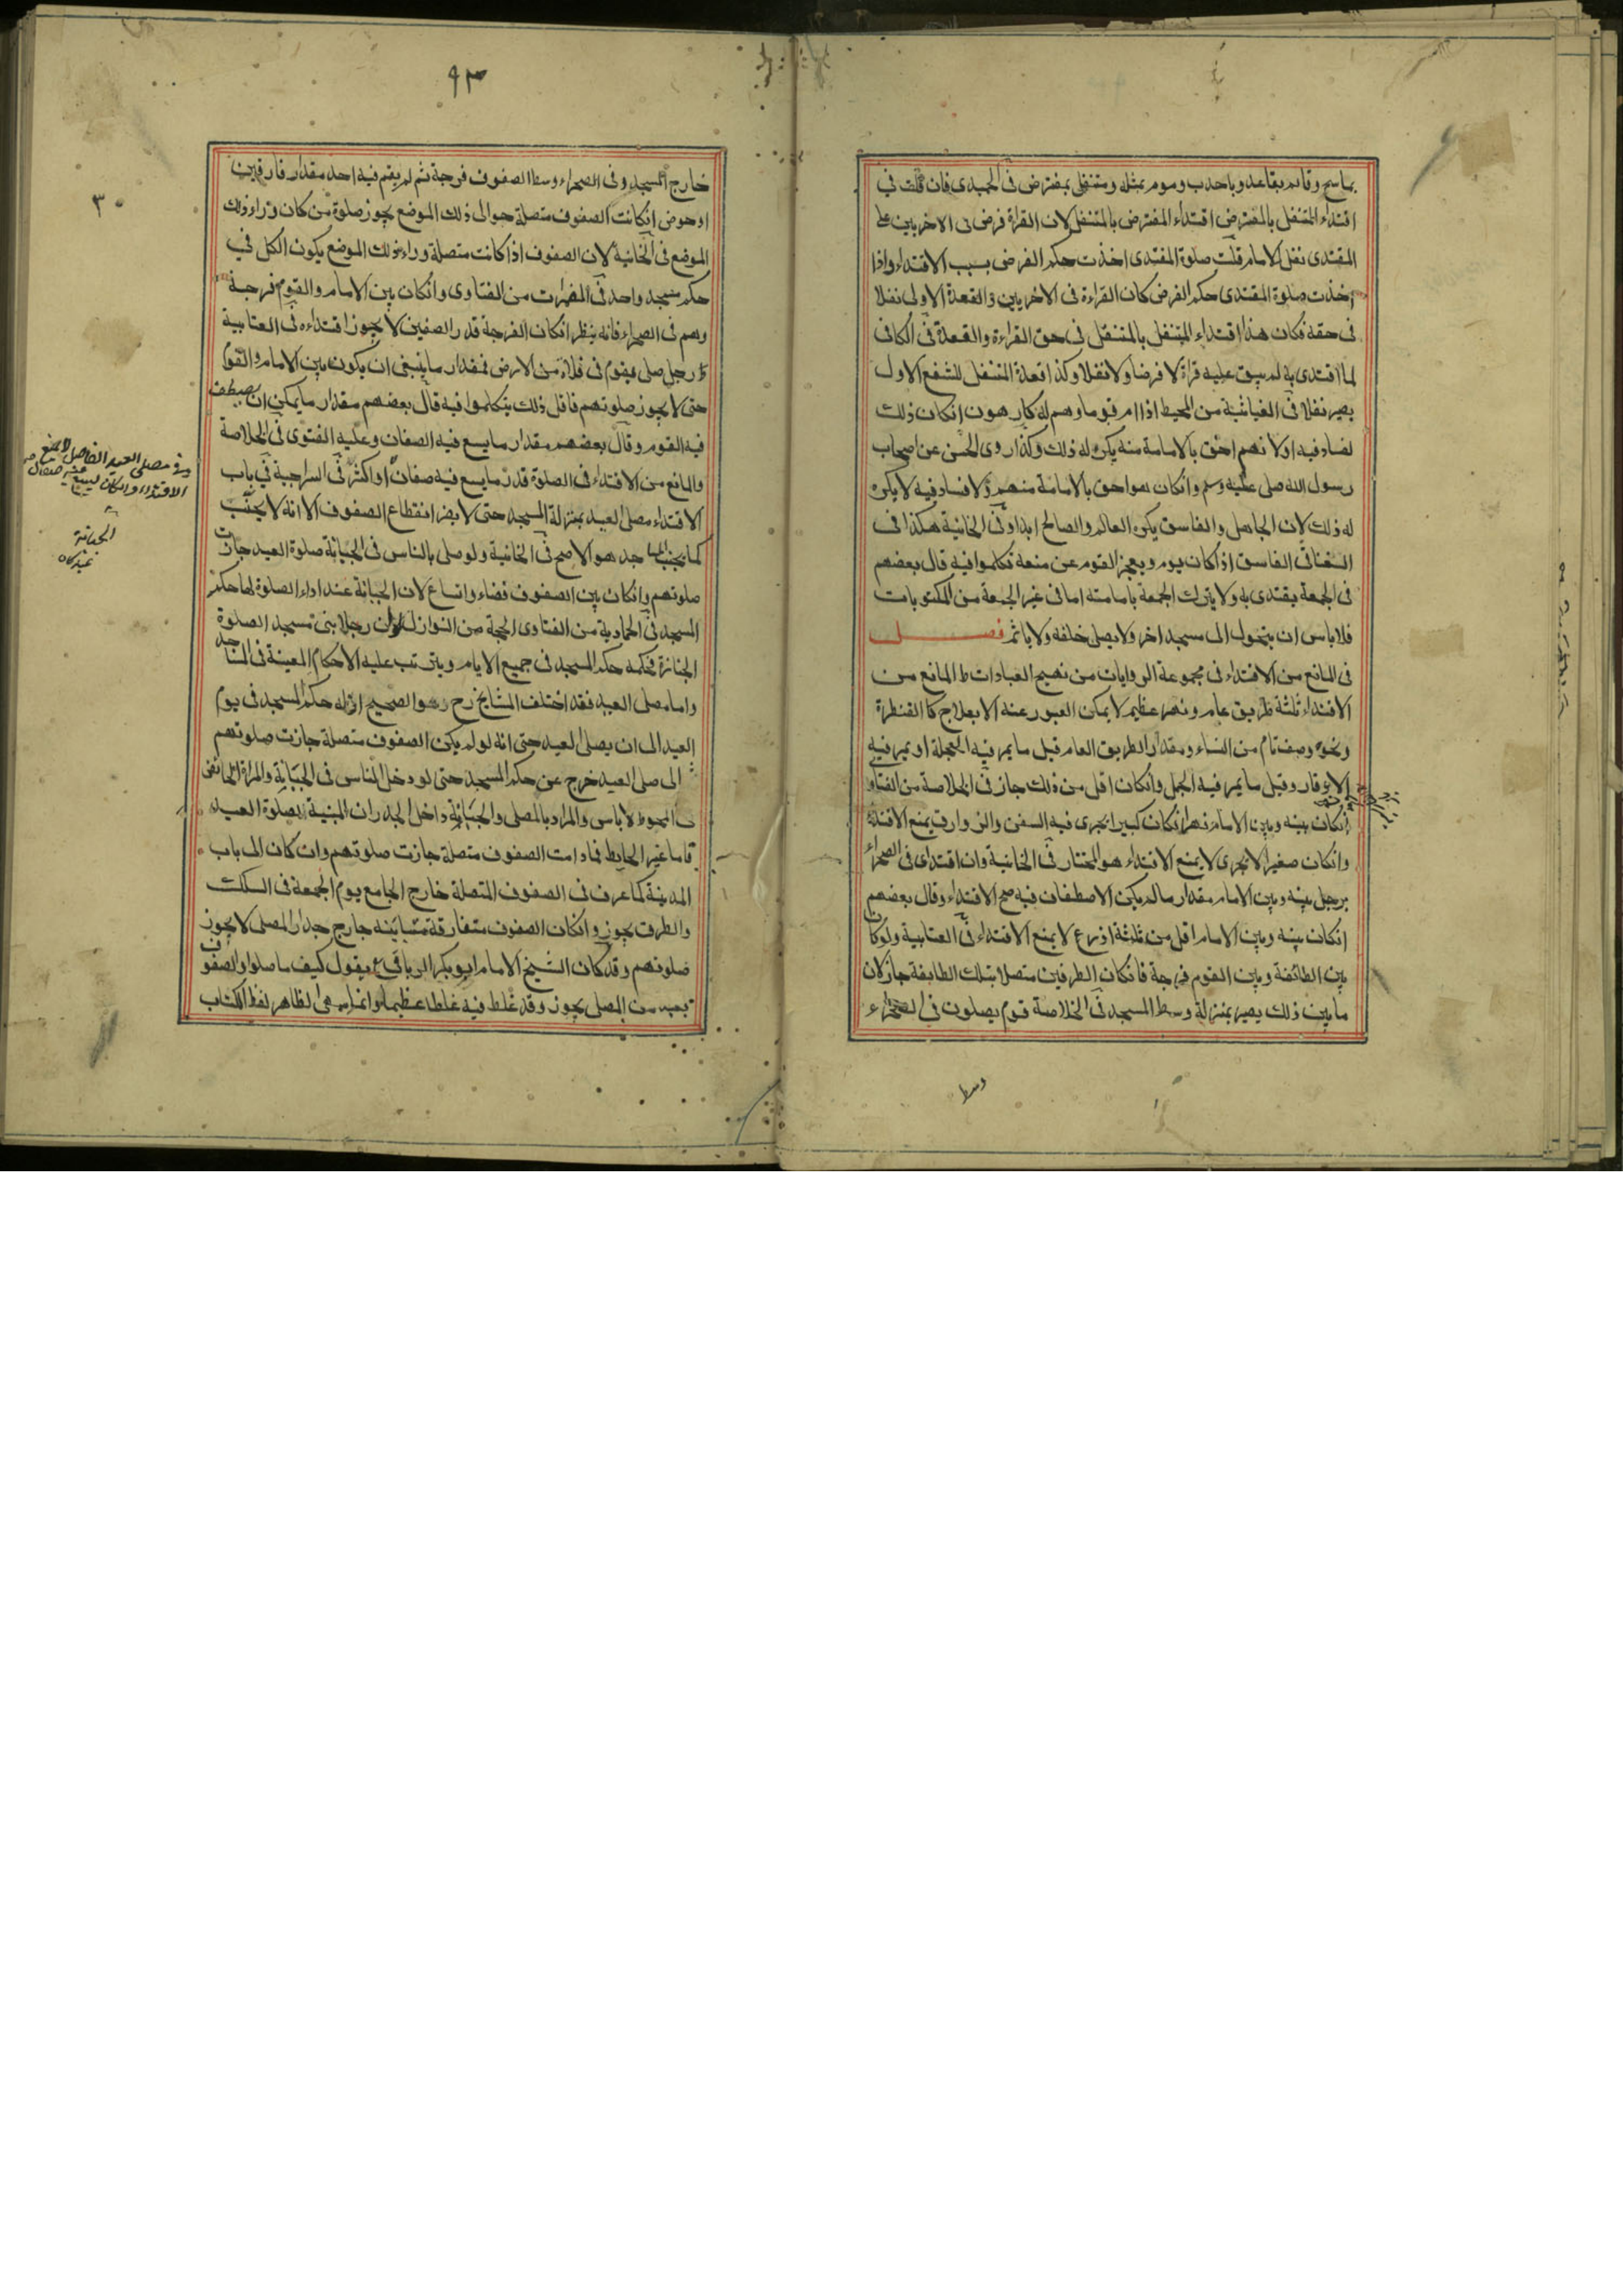 بماسح وقائم بقاعد وباحدب وموم بمثله ومتنفل بمفترض فى الحميدى فان قلت في
اقتداء المتنفل بالمفترض اقتداء المفترض بالمتنفل لان القراة فرض فى الاخريين على
المقتدى نفل الامام قلت صلوة المقتدى اخذت حكم الفرض بسبب الاقتداء واذا
اخذت صلوة المقتدى حكم الفرض كان القراءة فى الاخريين والقعدة الاولى نفلا
فى حقه فكان هذا اقتداء المتنفل بالمتنفل فى حق القراءة والقعدة فى الكافى
لما اقتدى به لم يبق عليه قراة لا فرضا ولا نفلا وكذا قعدة المتنفل للشفع الاول
يصير نفلا فى الغياثية من المحيط اذا ام قوما وهم له كارهون انكان ذلك
لفساد فيه اولانهم احق بالامامة منه يكره له ذلك وكذا روى الحسن عن اصحاب
رسول الله صلى عليه وسلم وانكان هو احق بالامامة منهم ولا فساد فيه لا يكره
له ذلك لان الجاهل والفاسق يكره العالم والصالح ابدا وفى الخانية هكذا فى
السغناقى الفاسق اذا كان يوم ويعجز القوم عن منعه تكلموا فيه قال بعضهم
فى الجمعة يقتدى به ولا يترك الجمعة بامامته اما فى غير الجمعة من المكتوبات
فلا باس ان يتحول الى مسجد اخر ولا يصلى خلفه ولا ياثم فصل
فى المانع من الاقتداء فى مجموعة الروايات من نهيج العبادات ط المانع من
الاقتداء ثلثة طريق عام ونهر عظيم لا يمكن العبور عنه الا بعلاج كا القنطرة
ونحوه وصف تام من النساء ومقدار الطريق العام قيل ما يمر فيه العجلة او يمر فيه
الاوقار وقيل ما يمر فيه الجمل وانكان اقل من ذلك جاز فى الخلاصة من الفتاو
انكان بينه وبين الامام نهر انكان كبيرا يجرى فيه السفن والزوارق يمنع الاقتداء
وانكان صغيرا لا تجرى لا يمنع الاقتداء هو المختار فى الخانية وان اقتدى فى الصحراء
برجل بينه وبين الامام مقدار مالم يمكن الاصطفاف فيه صح الاقتداء وقال بعضهم
انكان بينه وبين الامام اقل من ثلثة اذرع لا يمنع الاقتداء فى العتابية ولو كان
بين الطائفة وبين القوم فرجة فانكان الطرفين متصلا بتلك الطايفة جاز لان
ما بين ذلك يصير بمنزلة وسط المسجد فى الخلاصة قوم يصلون فى الصحراء
وسط
٩٣
٣٠
خارج المسجد وفى الصحراء وسط الصفوف فرجة ثم لم يقم فيه احد مقدار فارقين
او حوض انكانت الصفوف متصلة حوالى ذلك الموضع يجوز صلوة من كان وراء ذلك
الموضع فى الخانية لان الصفوف اذا كانت متصلة وراء ذلك الموضع يكون الكل في
حكم مسجد واحد فى المضمرات من الفتاوى وانكان بين الامام والقوم فرجة
وهم فى الصحراء فانه ينظر انكان الفرجة قدر الصفين لا يجوز اقتداءه فى العتابية
ط رجل صلى بقوم فى فلاة من الارض فمقدار ما ينبغى ان يكون بين الامام والقوم
حتى لا يجوز صلوتهم فاقل ذلك تكلموا فيه قال بعضهم مقدار ما يمكن ان يصطف
فيه القوم وقال بعضهم مقدار ما يسع فيه الصفان وعليه الفتوى فى الخلاصة
والمانع من الاقتداء فى الصلوة قدر ما يسع فيه صفان او اكثر فى السراجية في باب
الاقتداء مصلى العيد بمنزلة المسجد حتى لا يضر انقطاع الصفوف الا انه لا يجنب
كما يجنب المساجد هو الاصح فى الخانية ولو صلى بالناس فى الجبانة صلوة العيد جازت
صلوتهم وانكان بين الصفوف فضاء واتساع لان الجبانة عند اداء الصلوة لها حكم
المسجد فى الحمادية من الفتاوى الحجة من النوازل لو ان رجلا بنى مسجد الصلوة
الجنازة فحكمه حكم المسجد فى جميع الايام ويترتب عليه الاحكام المعينة فى المساجد
واما مصلى العيد فقد اختلف المشايخ رح وهو الصحيح ان له حكم المسجد فى يوم
العيد الى ان يصلى العيد حتى انه لو لم يكن الصفوف متصلة جازت صلوتهم
الى صلى العيد خرج عن حكم المسجد حتى لو دخل الناس فى الجبانة والمراة الحائض
المحوط لا باس والمراد بالمصلى والجبانة داخل الجدران المبنية لصلوة العيد
فاما غير الحايط فما دامت الصفوف متصلة جازت صلوتهم وان كان الى باب
المدينة كما عرف فى الصفوف المتصلة خارج الجامع يوم الجمعة فى السكك
والطرق يجوز وانكان الصفوف متفارقة متباينة خارج جدار المصلى لا يجوز
صلوتهم وقد كان الشيخ الامام ابو بكر يقول كيف ما صلوا والصفوف
بعيد من المصلى يجوز وقد غلط فيه غلطا عظيما وانما لظاهر لفظ الكتاب
وفى مصلى العيد الفاصل لا يمنع
الاقتداء وانكان يسع فيه صفان
الجبانة
عيدكاه